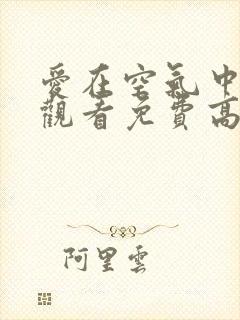 愛在空氣中
觀看免費高
阿里雲